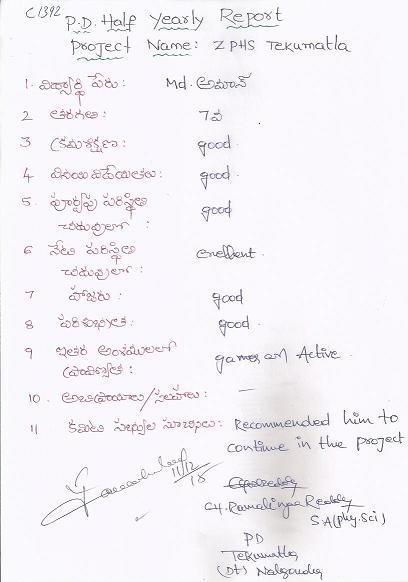 C1392
P.D. Half Yearly Report
Project Name: ZPHS Tekumatla
1. విద్యార్థి పేరు: Md. అమాన్
2 తరగతి: 7వ
3 క్రమశిక్షణ: good.
4 వినయ విధేయతలు: good.
5. పూర్వపు పరిస్థితి good
చదువులో:
6 నేటి పరిస్థితి excellent.
చదువులో:
7 హాజరు: good
8 పరిశుభ్రత: good.
9 ఇతర అంశములలో games and Active.
ప్రావీణ్యత:
10. అభిప్రాయాలు/సలహాలు: —
11 కమిటి సభ్యుల సూచనలు: Recommended him to
continue in the project
11/12/18
CH. Ramalinga Reddy
S.A(phy.sci)
PD
Tekumatla
(Dt) Nalgonda